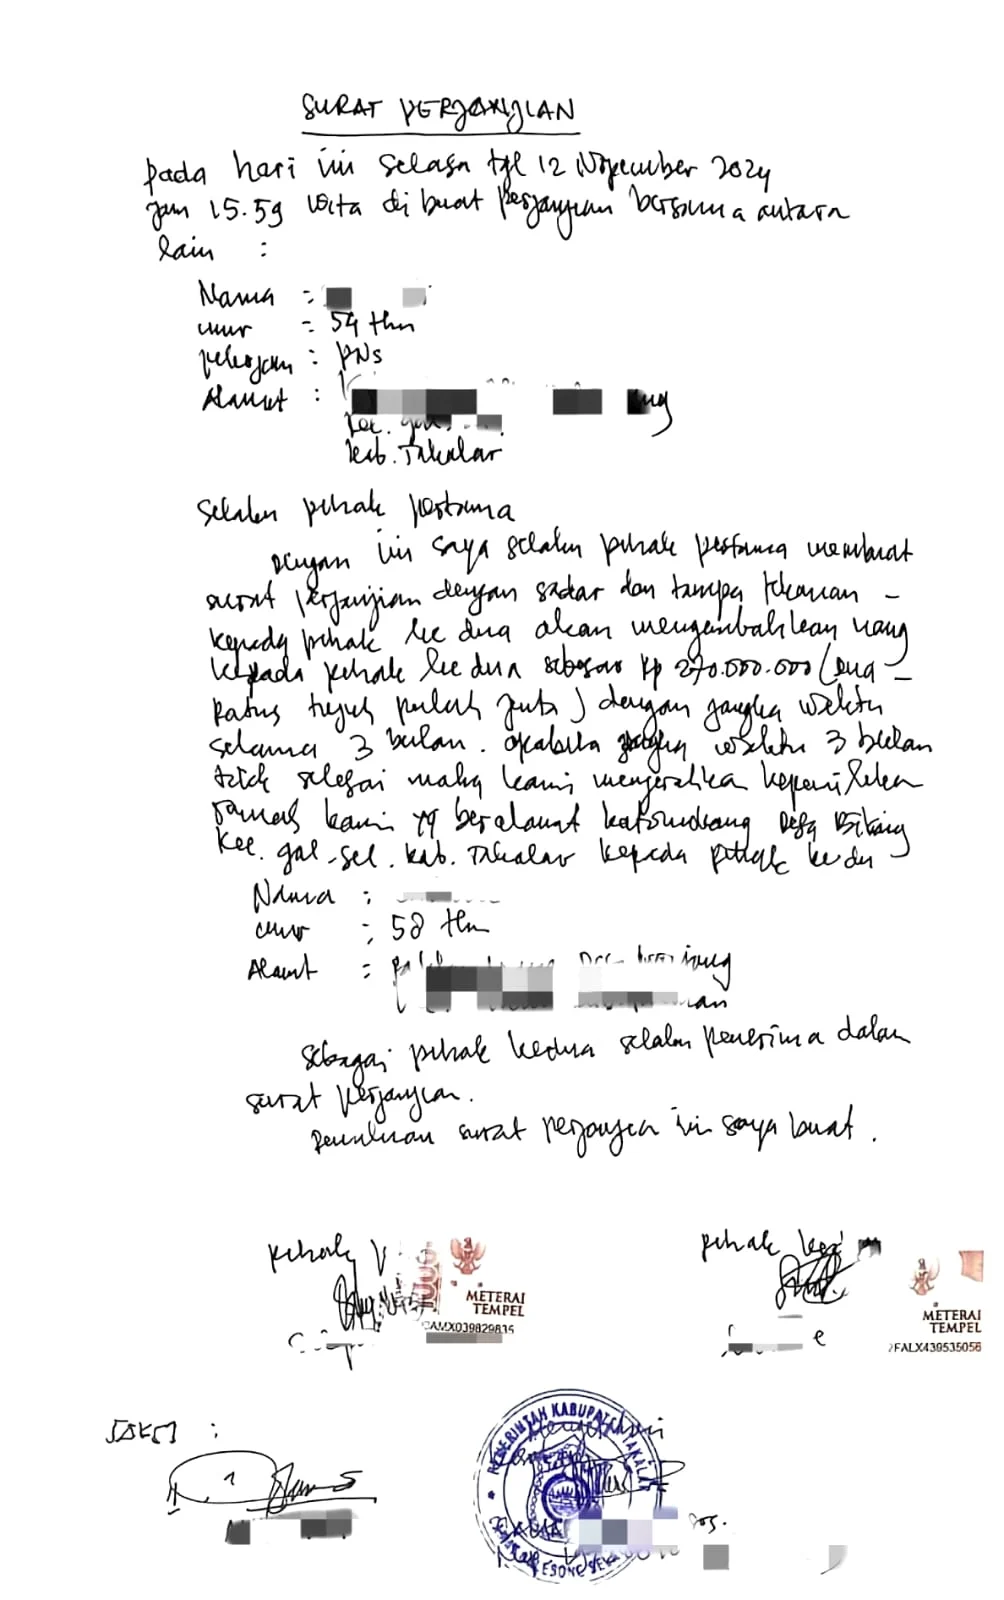 SURAT PERJANJIAN
pada hari ini selasa tgl 12 Nopember 2024
jam 15.59 wita di buat perjanjian bersama antara
lain :
Nama :
umur : 54 thn
pekerjaan : PNS
Alamat :
kec. gal.
kab. Takalar
selaku pihak pertama
Dengan ini saya selaku pihak pertama membuat
surat perjanjian dengan sadar dan tampa tekanan -
kepada pihak ke dua akan mengembalikan uang
kepada pihak ke dua sebesar Rp 270.000.000 (Dua -
Ratus tujuh puluh juta) dengan jangka waktu
selama 3 bulan. apabila jangka waktu 3 bulan
tidak selesai maka kami menyerahkan kepemilikan
rumah kami yg beralamat Desa Bikang
Kec. gal-sel. kab. Takalar kepada pihak kedu
Nama :
umur : 58 thn
Alamat :
sebagai pihak kedua selaku penerima dalam
surat perjanjian.
Demikian surat perjanjian ini saya buat.
pihak
METERAI
TEMPEL
pihak
METERAI
TEMPEL
FALX439535056
SAKSI :
1
PEMERINTAH KABUPATEN TAKALAR
Mengetahui